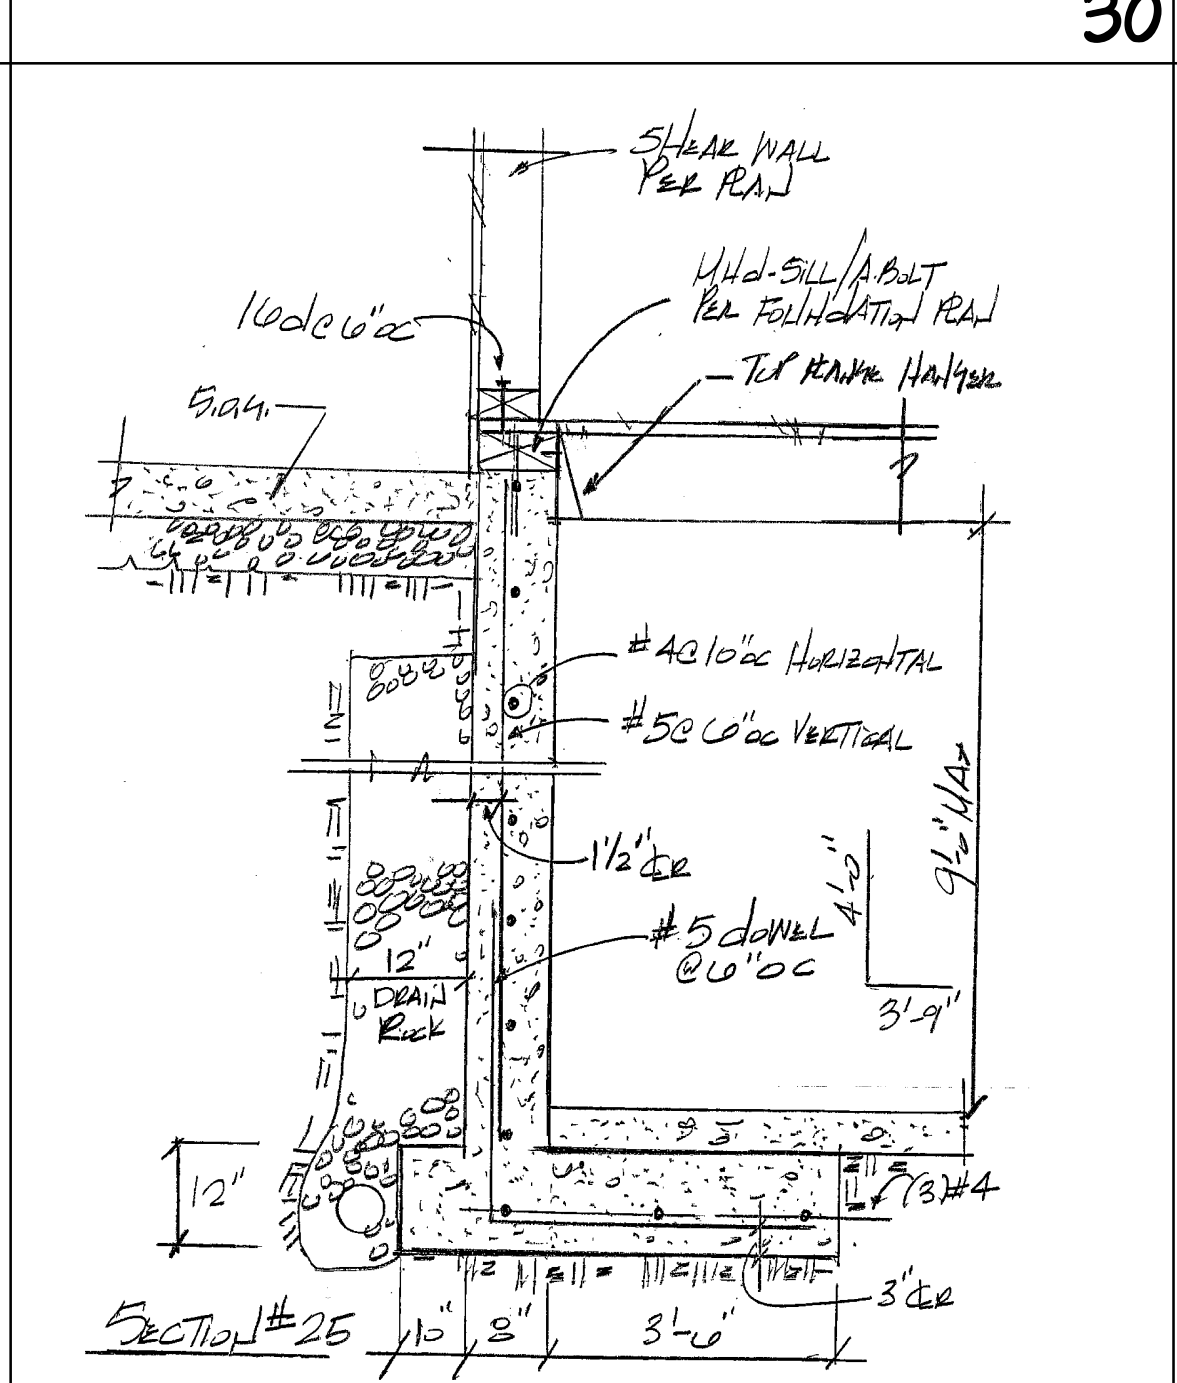 30
SHEAR WALL
PER PLAN
MUD-SILL/A.BOLT
PER FOUNDATION PLAN
16d@6"oc
TOP FLANGE HANGER
S.O.G.
#4@10"oc HORIZONTAL
#5@6"oc VERTICAL
9'-0" MAX
1½" CLR
4'-0"
#5 DOWEL
@6"OC
12"
DRAIN
ROCK
3'-9"
12"
(3)#4
3" CLR
SECTION #25
10"
8"
3'-6"